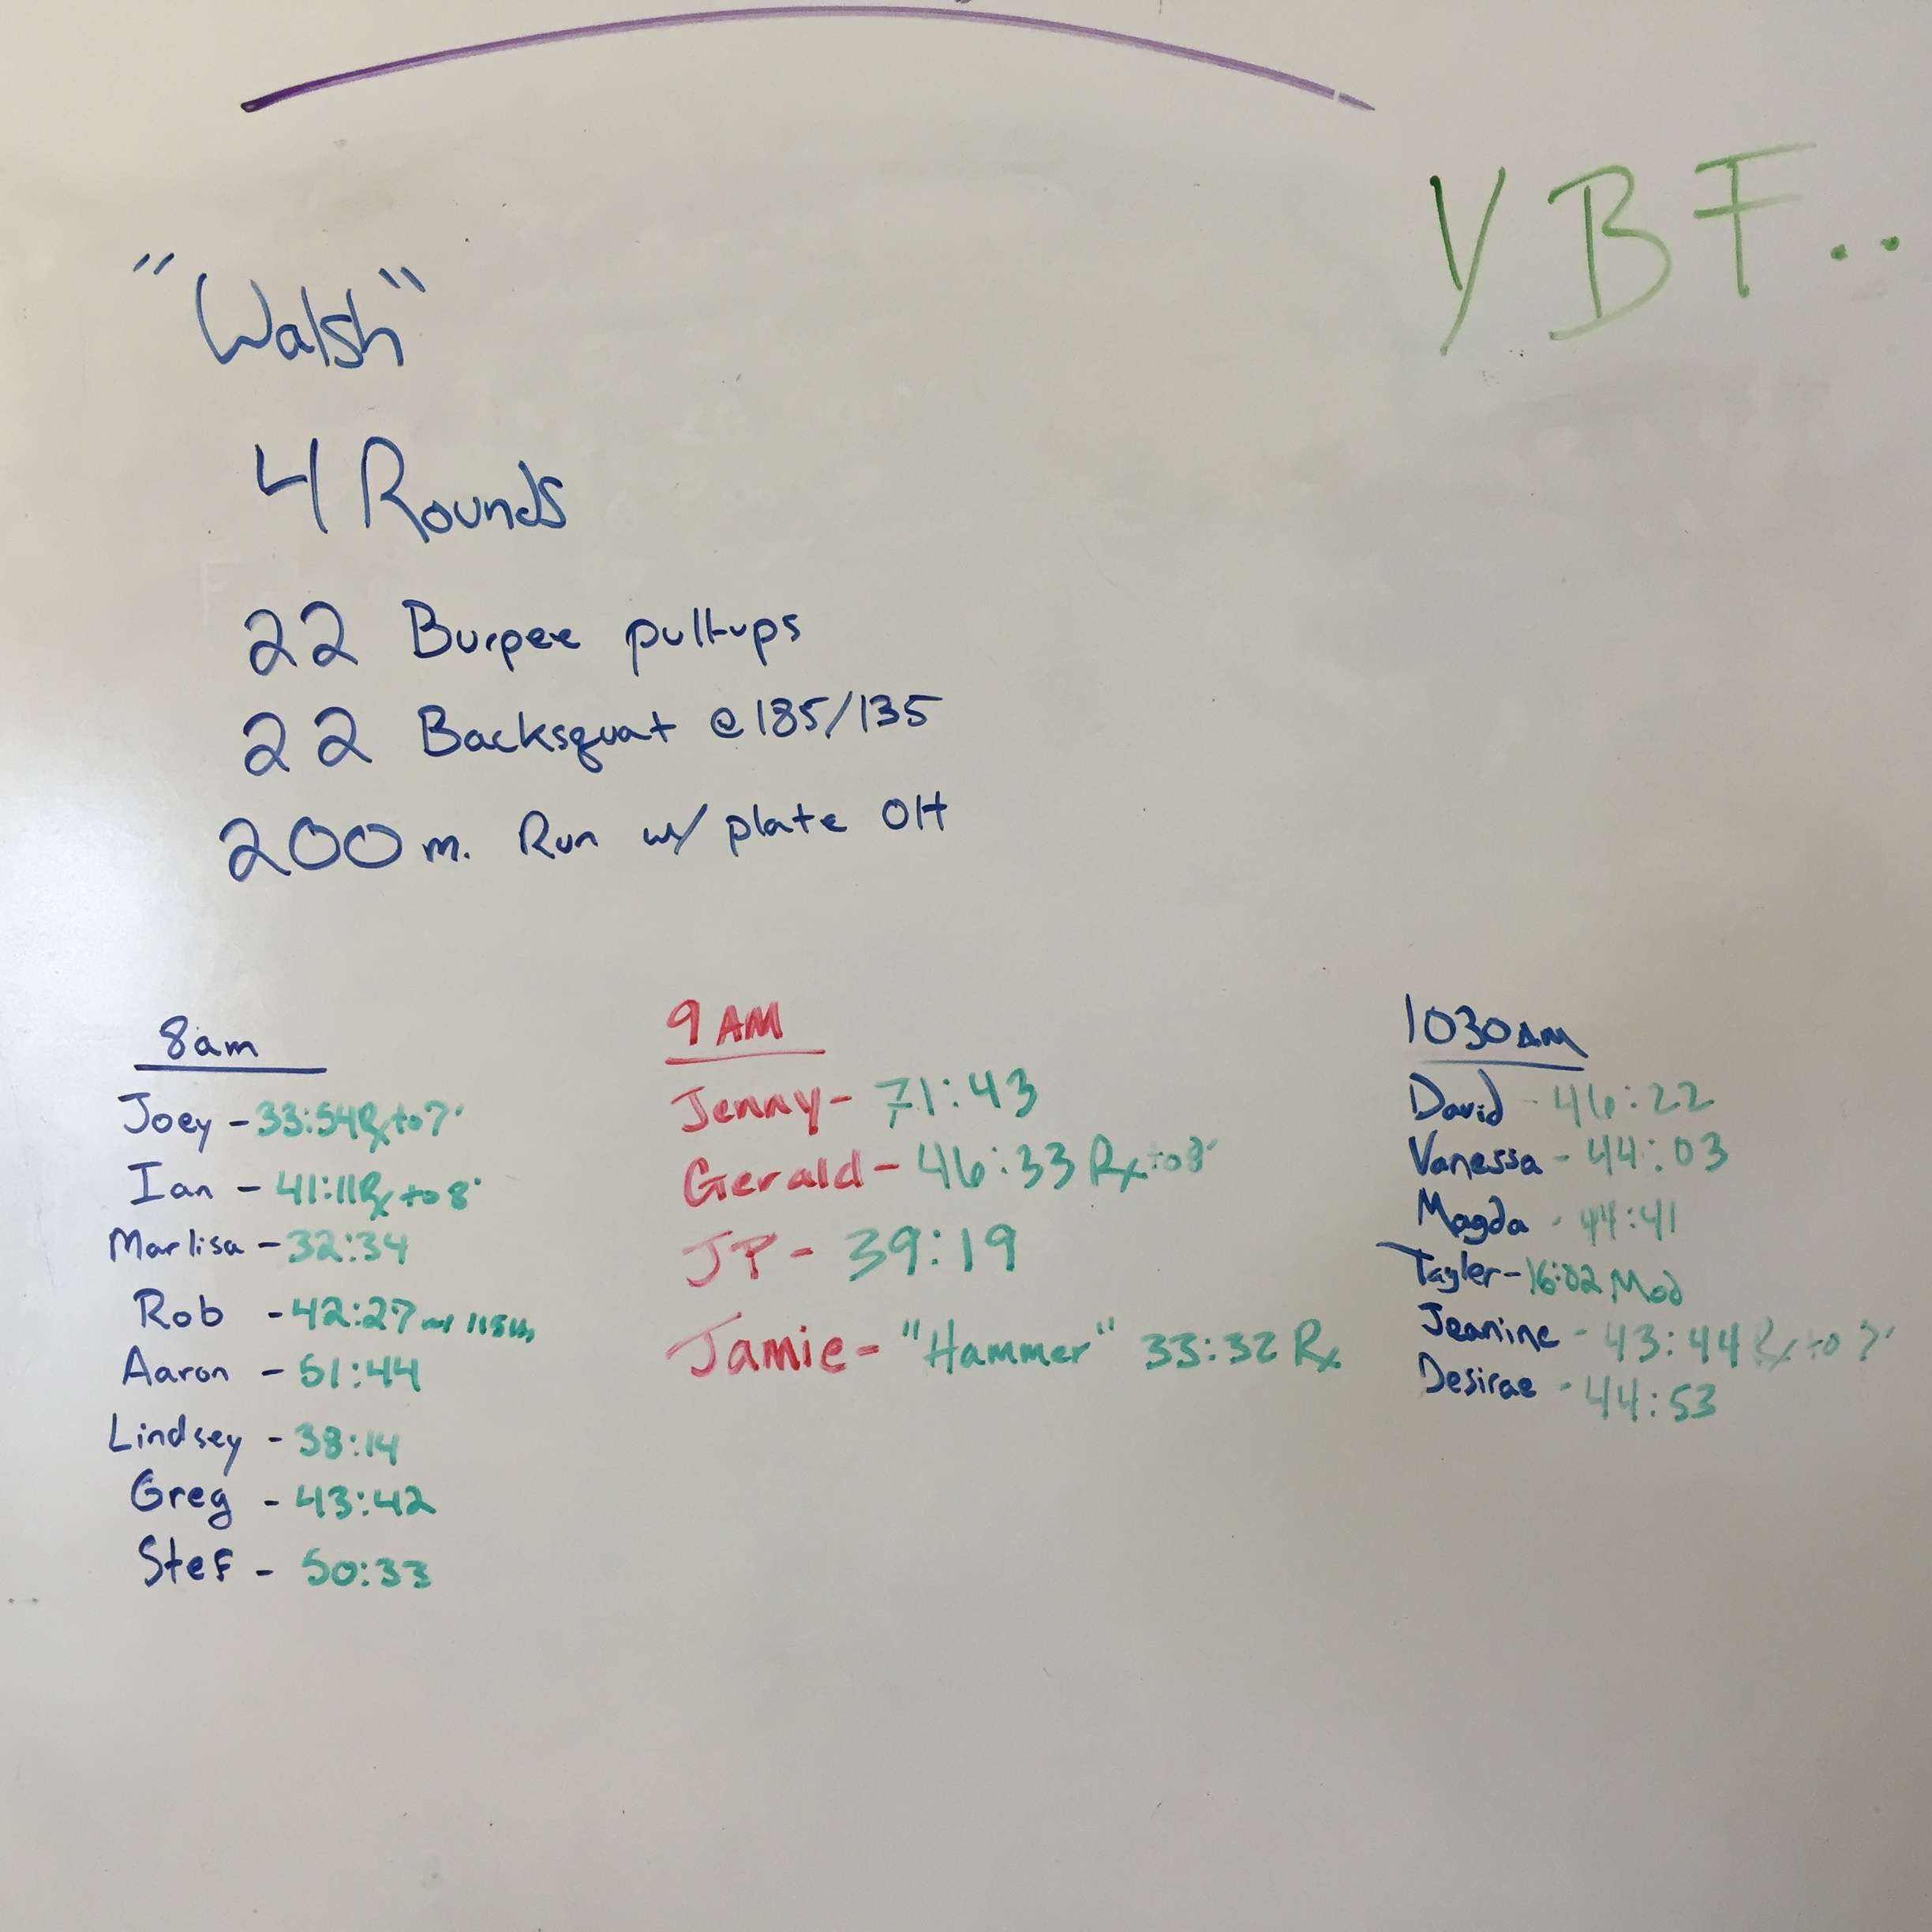 YBF..
"Walsh"
4 Rounds
22 Burpee pull-ups
22 Backsquat @ 185/135
200 m. Run w/ plate OH
8am
Joey - 33:54 Rx to 7'
Ian - 41:11 Rx to 8'
Marlisa - 32:34
Rob - 42:27
Aaron - 51:44
Lindsey - 38:14
Greg - 43:42
Stef - 50:33
9 AM
Jenny - 71:43
Gerald - 46:33 Rx to 8'
JP - 39:19
Jamie - "Hammer" 33:32 Rx
1030AM
David - 46:22
Vanessa - 44:03
Magda - 44:41
Tayler - 16:02 Mod
Jeanine - 43:44 Rx to
Desirae - 44:53